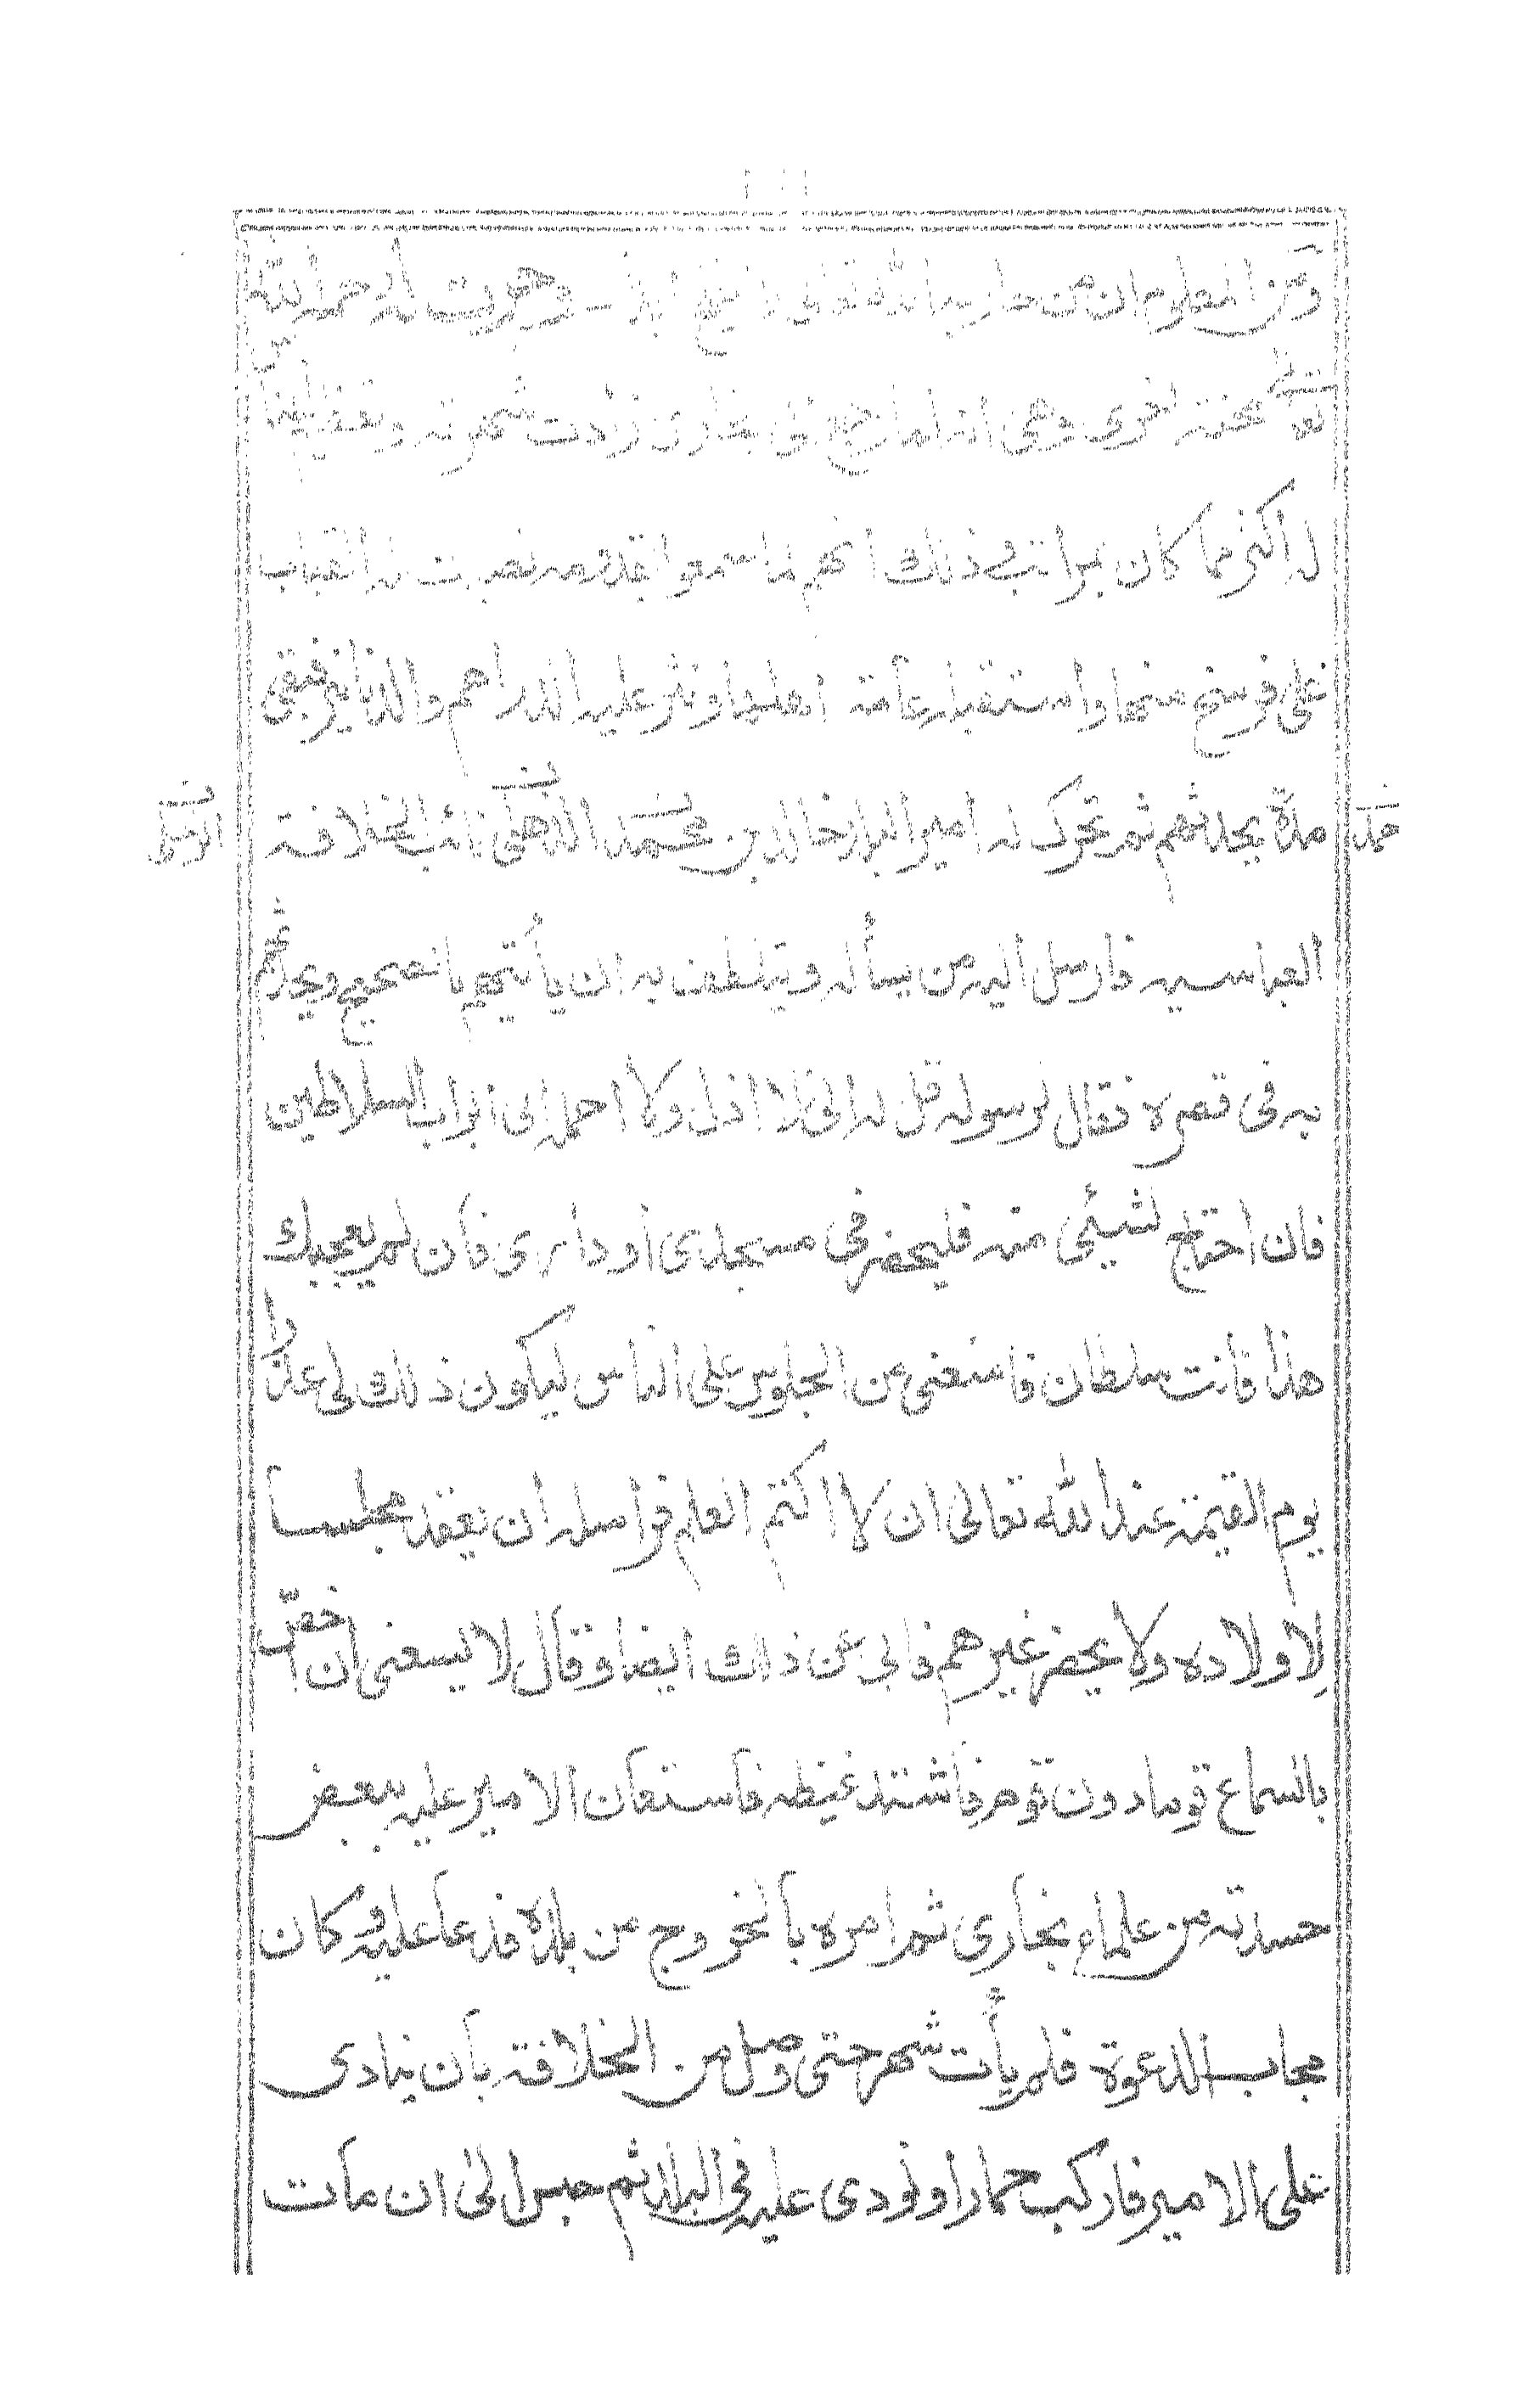 ومن المعلوم ان من حاربه الله تعالى لا يفلح ابدًا وجريت له رحمه الله
تعالى محنة اخرى وهى انه لما رجع الى بخارى زادت شهرته وتعظيم الناس
له اكثر مما كان بمراتب ذلك انهم لما سمعوا بقدومه نصبت له القباب
على فرسخ منها واستقبله عامة اهلها ونثر عليه الدراهم والدنانير فبقى
مدة يحدثهم ثم تحرك له امير البلد خالد بن محمد الذهلى نائب الخلافة
العباسيه فارسل اليه من يسأله ويتلطف به ان يأتيهم بالصحيح ويحدثهم
به فى قصره فقال لرسوله قل له انى لا اذل ولا احمله الى ابواب السلاطين
فان احتاج لشيئى منه فليحضر فى مسجدى او دارى فان لم يعجبك
هذا فانت سلطان فامنعنى من الجلوس على الناس ليكون ذلك لى عذرا
يوم القيمة عند الله تعالى ان لا اكتم العلم فراسله ان يعقد مجلسا
لاولاده ولا يحضر غيرهم فابى عن ذلك ايضا وقال لا يسعنى ان اخصّ
بالسماع قوما دون قوم فاشتد غيظه فاستعان الامير عليه ببعض
حسدته من علماء بخارى ثم امره بالخروج من بلده فدعا عليه وكان
مجاب الدعوة فلم يأت شهر حتى وصل من الخلافة بان ينادى
على الامير فاركب حمارا ونودى عليه فى البلد ثم حبس الى ان مات